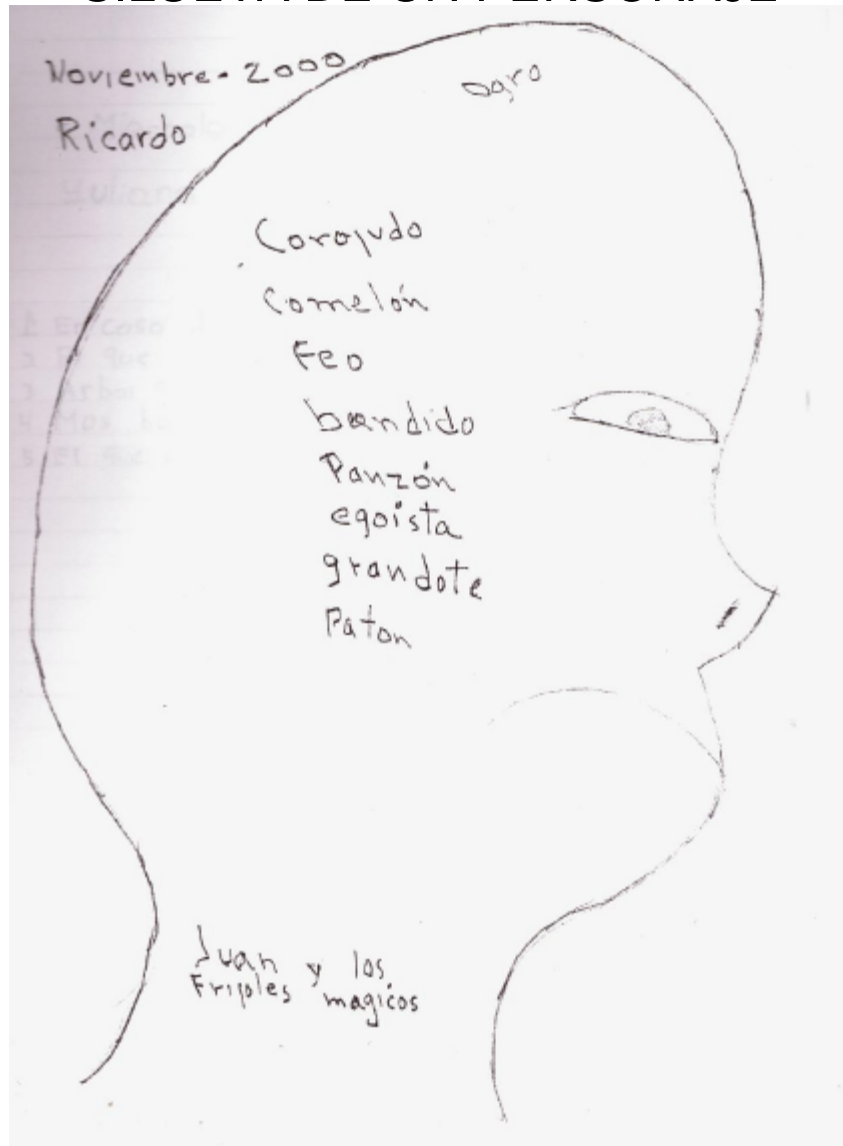 SILUETA DE UN PERSONAJE
Noviembre - 2000
Ricardo
ogro
Corajudo
Comelón
Feo
bandido
Panzón
egoista
grandote
Paton
Juan y los
Frijoles magicos